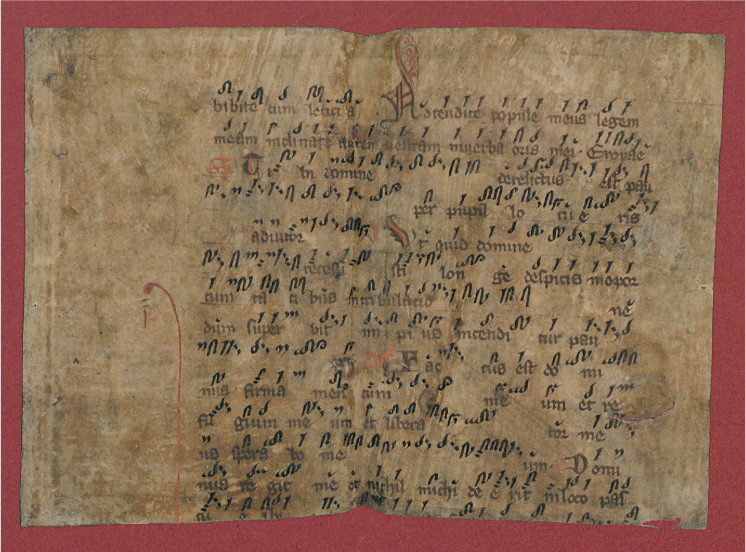 bibite cum leticia. Adtendite popule meus legem
meam inclinate aurem vestram in verba oris mei. Euouae
Tibi domine derelictus est pau
per pupil lo tu e ris
adiutor Ut quid domine
recessi sti lon ge despicis in opor
tuni ta ti bus in tribulatio ne
dum super bit im pi us incendi tur pau
Fac tus est do mi
nus firma men tum me um et re
fu gium me um et libera tor me
us spera bo in e um Domi
nus re git me et nihil michi de e rit in loco pas